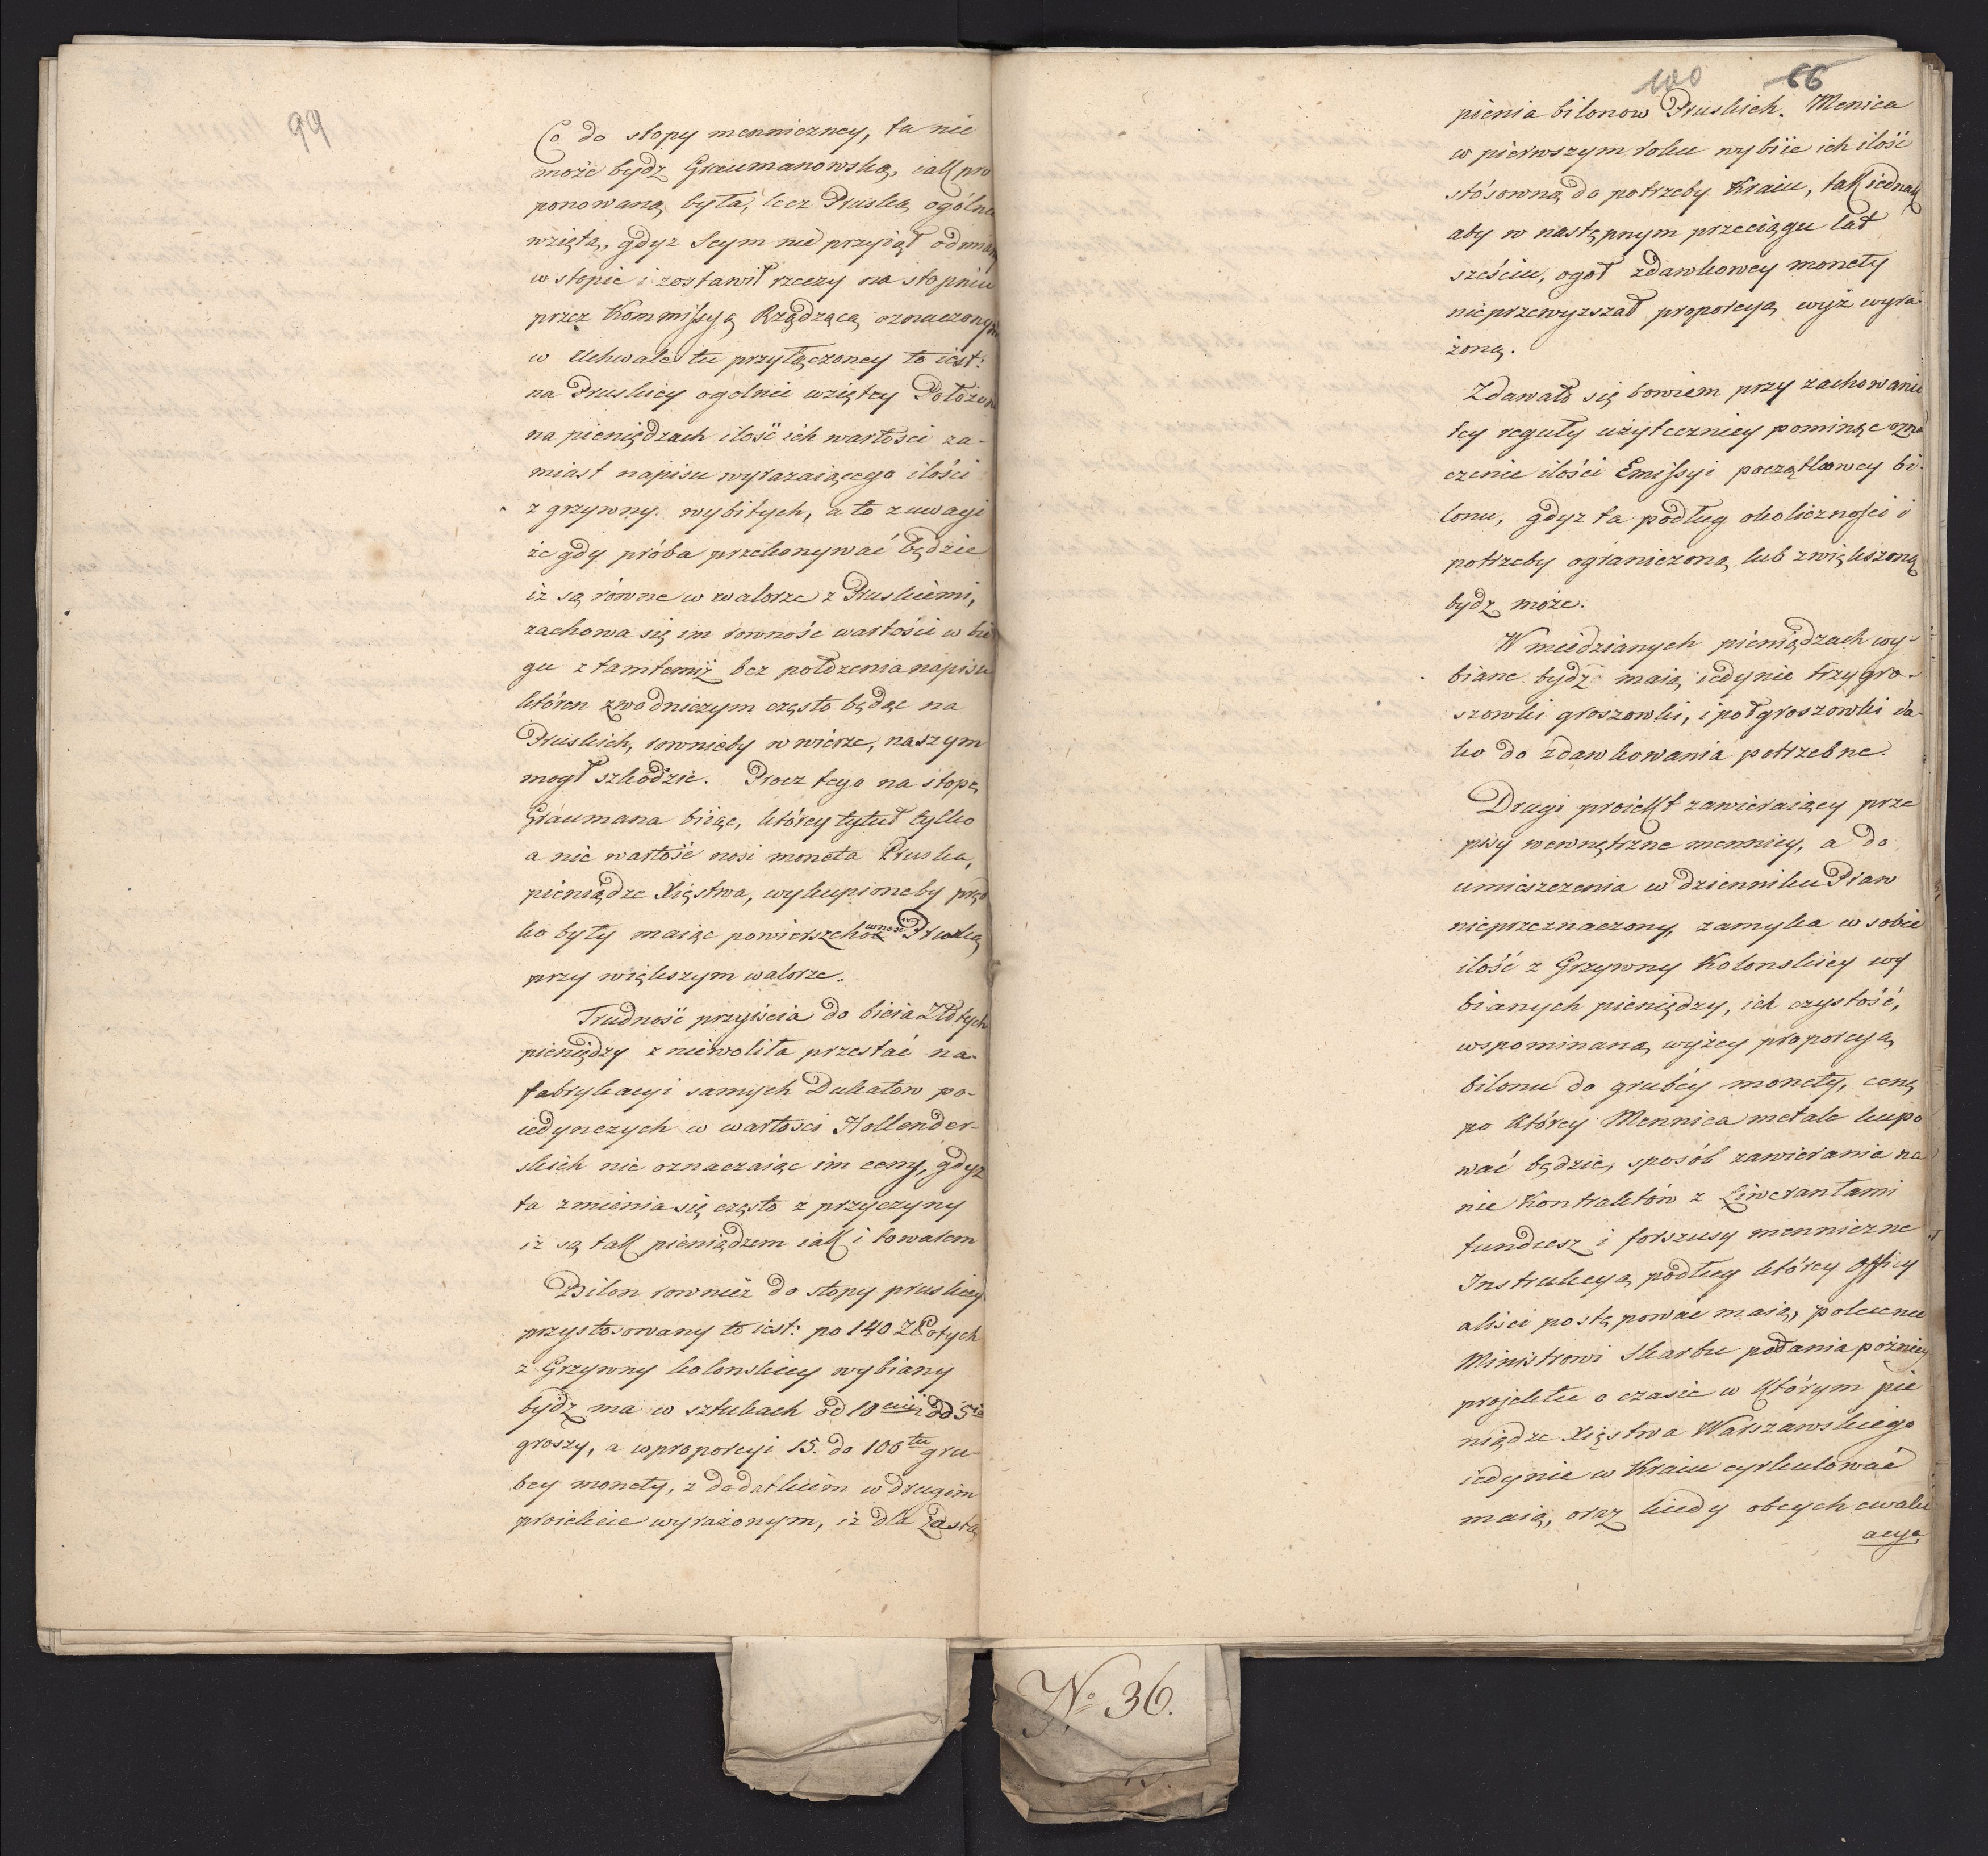 99
Co do stopy menniczney, ta nie
może bydz Graumanowską, iak pro
ponowaną była, lecz Pruską ogólnie
wziętą, gdyz Seym nie przyiął odmiany
w stopie i zostawił rzeczy na stopniu
przez Kommissyą Rządzącą oznaczonym
w Uchwale tu przyłączoney to iest:
na Pruskiey ogolnie wziętey Położono
na pieniędzach ilość ich wartości za-
miast napisu wyrazaiącego ilości
z grzywny wybitych, a to z uwagi
że gdy próba przekonywać będzie
iż są równe w walorze z Pruskiemi,
zachowa się im rowność wartości w bie
gu z tamtemiż bez połozenia napisu
któren zwodniczym często będąc na
Pruskich, rownieby w wierze, naszym
mogł szkodzic. Procz tego na stopę
Graumana biiąc, którey tytuł tylko
a nie wartość nosi moneta Pruska,
pieniądze Xięstwa, wykupioneby pręd
ko były maiąc powierzchowność Pruską
przy większym walorze.
Trudność przyiścia do bicia Złotych
pieniędzy zniewoliła przestać na
fabrykacyi samych Dukatow po-
iedynczych w wartosci Hollender-
skich nie oznaczaiąc im ceny, gdyz
ta zmienia się często z przyczyny
iż są tak pieniądzem iak i towarem
Bilon rownież do stopy pruskiey
przystosowany to iest: po 140 Złotych
z Grzywny kolonskiey wybiany
bydz ma w sztukach od 10ciu i od 5ciu
groszy, a w proporcyi 15. do 100tu gru-
bey monety, z dodatkiem w drugim
proiekcie wyrażonym, iż dla zastą
100 66
pienia bilonow Pruskich. Menica
w pierwszym roku wybiie ich ilość
stósowną do potrzeby Kraiu, tak iednak
aby w następnym przeciągu lat
sześciu, ogoł zdawkowey monety
nieprzewyzszał proporcyą wyż wyra-
żoną.
Zdawało się bowiem przy zachowaniu
tey reguły użyteczniey pominąć ozna
czenie ilości Emissyi początkowey bi-
lonu, gdyz ta podług okoliczności i
potrzeby ograniczoną lub zwiększoną
bydz może.
W miedzianych pieniądzach wy-
biane bydz maią iedynie trzygro-
szowki groszowki, i połgroszowki ia-
ko do zdawkowania potrzebne.
Drugi proiekt zawieraiący prze
pisy wewnętrzne mennicy, a do
umieszczenia w dzienniku Praw
nieprzeznaczony, zamyka w sobie
ilość z Grzywny Kolonskiey wy
bianych pieniędzy, ich czystość,
wspominaną wyżey proporcyą
bilonu do grubéy monety, cenę
po którey Mennica metale kupo
wać będzie, sposób zawierania na
nie Kontraktów z Liwerantami
fundusz i forszusy menniczne
Instrukcyą podług którey Officy
aliści postępować maią, polecenie
Ministrowi Skarbu podania poźniey
projektu o czasie w którym pie
niądze Xięstwa Warszawskiego
iedynie w Kraiu cyrkulować
maią, oraz kiedy obcych ewalu
acya
No 36.